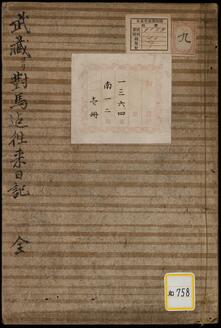 武藏ゟ對馬迄往来日記 全
九
一三六四
南一二
壱冊
和
758